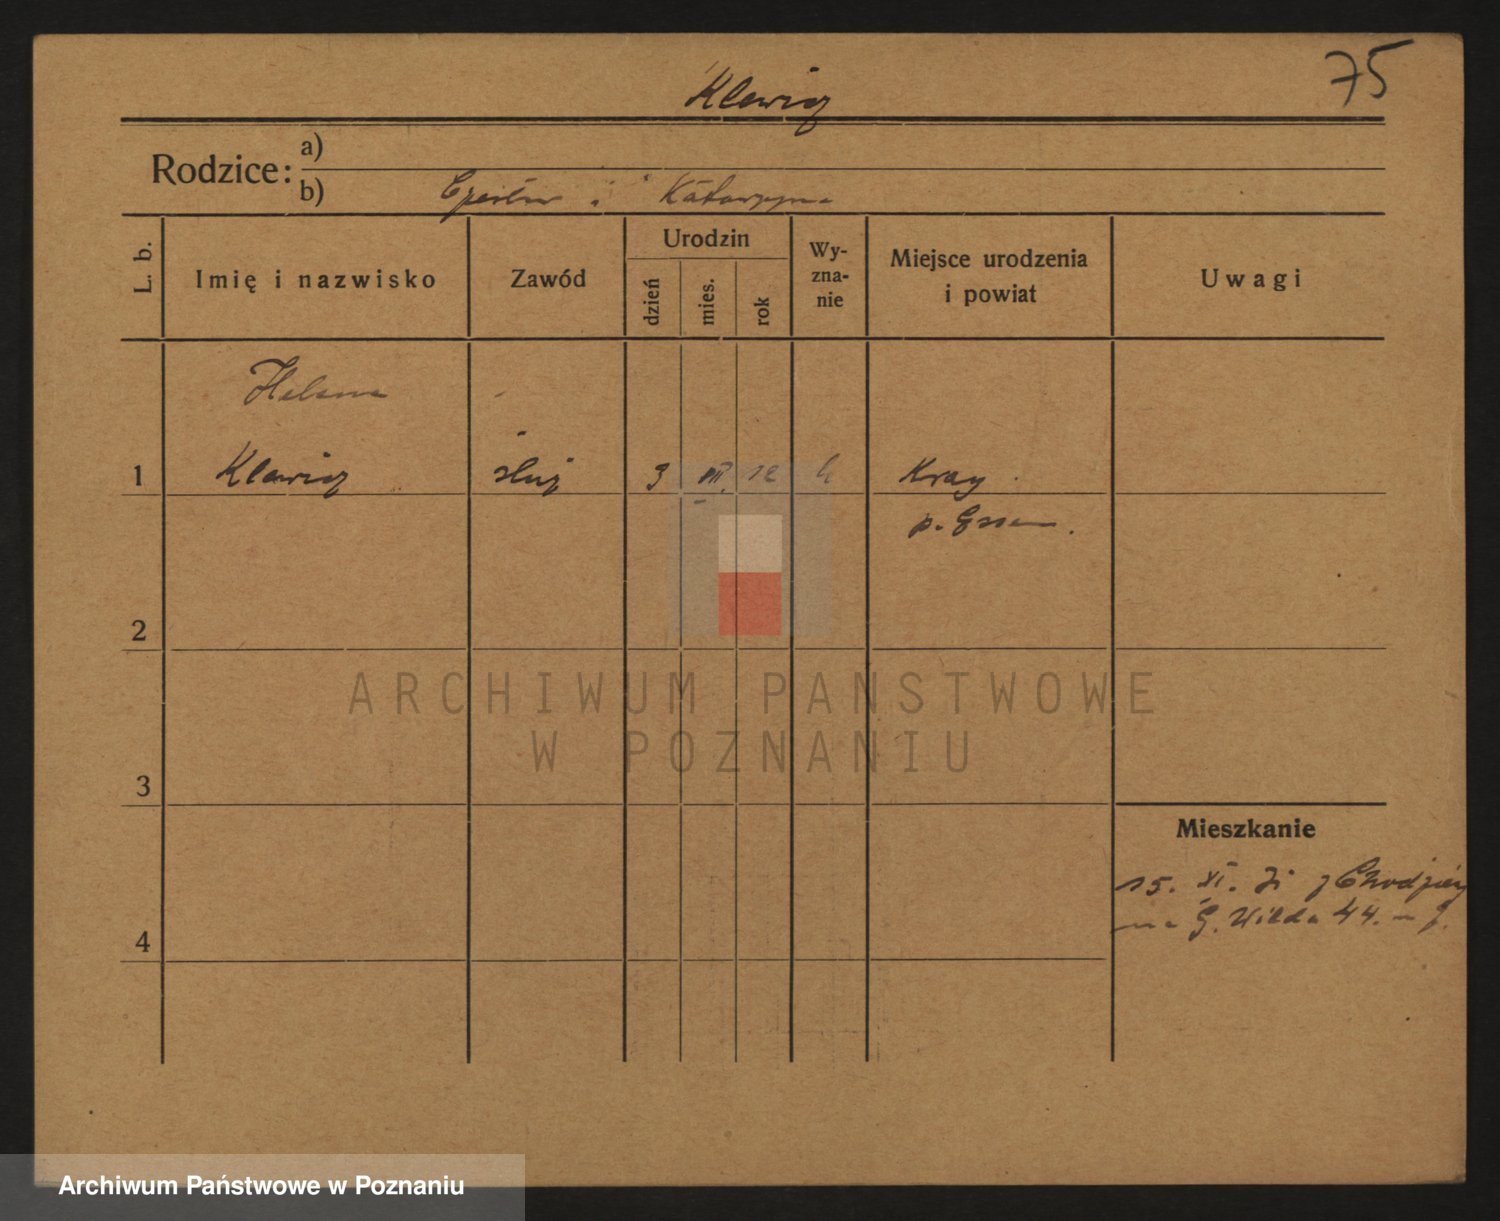 75
Klawicz
Rodzice: a)
b) Czesław i Katarzyna
L. b.
Imię i nazwisko
Zawód
Urodzin
dzień
mies.
rok
Wy-
zna-
nie
Miejsce urodzenia
i powiat
Uwagi
Helena
1 Klawicz służ 3 12 k Kray
p. Essen.
2
3
4
Mieszkanie
15. XI. z Chodzież
na G. Wilda 44.
ARCHIWUM PAŃSTWOWE
W POZNANIU
Archiwum Państwowe w Poznaniu